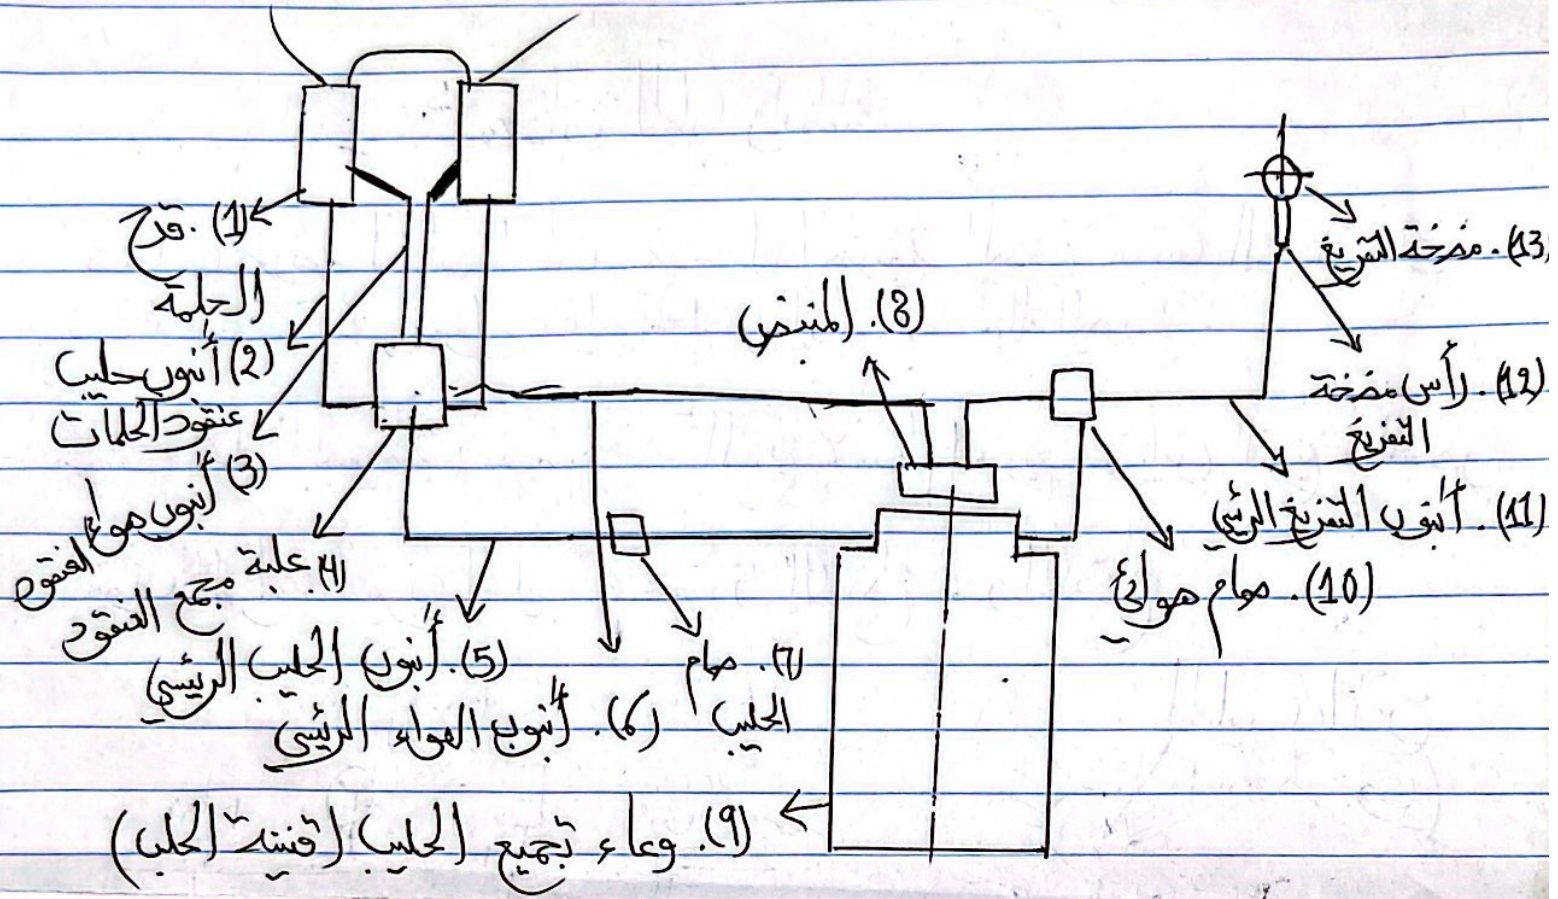 (1). قدح
الحلمة
(2) أنبوب حليب
عنقود الحلمات
(3) أنبوب هواء العنقود
(4) علبة مجمع العنقود
(5). أنبوب الحليب الرئيسي
(6). أنبوب الهواء الرئيسي
(7). صمام
الحليب
(8). المنبض
(9). وعاء تجميع الحليب (قنينة الحلب)
(10). صمام هوائي
(11). أنبوب التفريغ الرئيسي
(12). رأس مضخة
التفريغ
(13). مضخة التفريغ